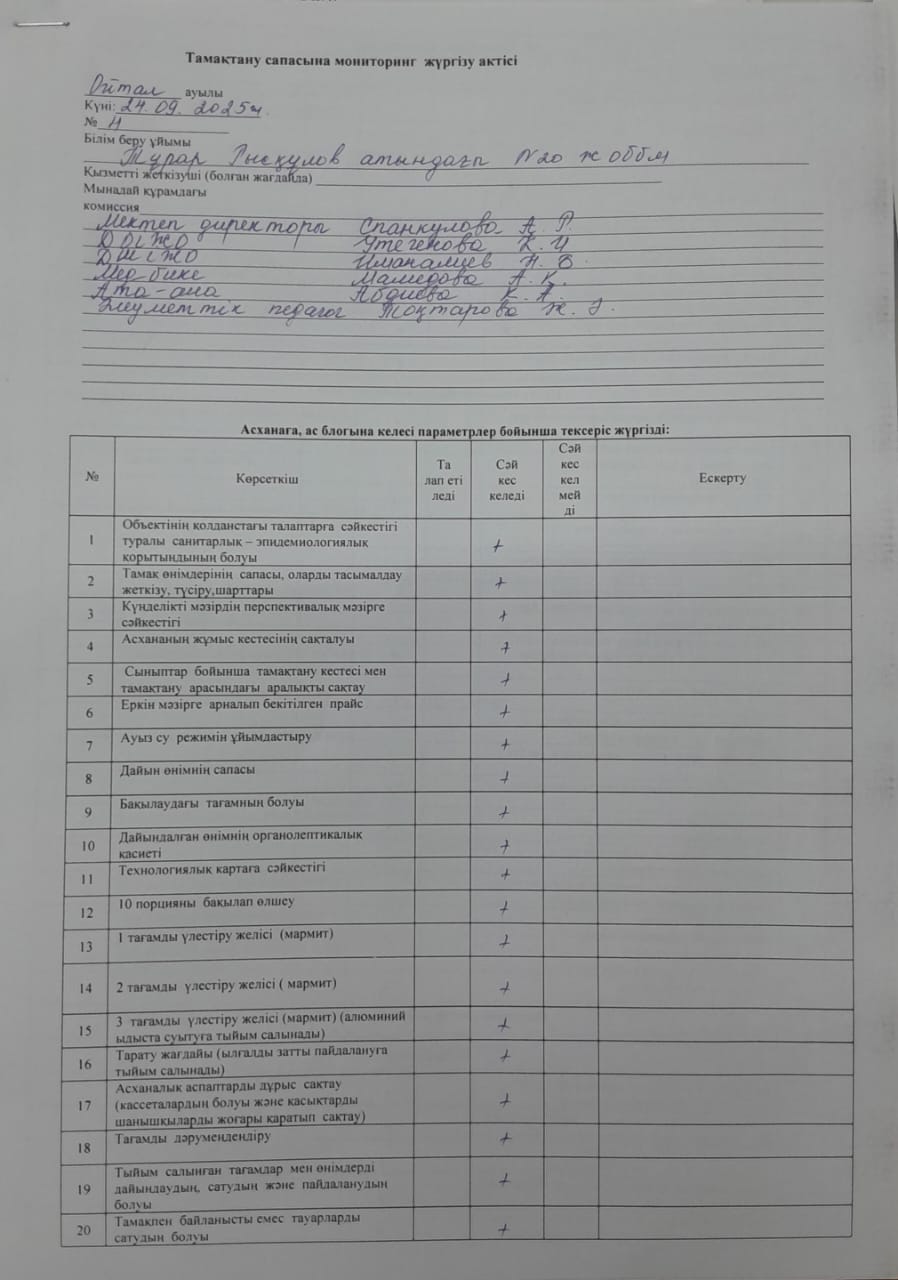 Тамақтану сапасына мониторинг жүргізу актісі
Ойтал ауылы
Күні: 24. 09. 2025ж.
№ 4
Білім беру ұйымы
Тұрар Рысқұлов атындағы N20 ж оббм
Қызметті жеткізуші (болған жағдайда)
Мынадай құрамдағы
комиссия
Мектеп директоры Спанкулова А. Р.
ДОІЖО Утегенова К. И
ДШІЖО Иманалиев Н. Б.
Мед-бике Мамедова А. К.
Ата-ана Абдиева К. А.
Әлеуметтік педагог Тоқтарова Ж. Ә.
Асханаға, ас блогына келесі параметрлер бойынша тексеріс жүргізді:
№ Көрсеткіш Та Сәй Сәй Ескерту
лап еті кес кес
леді келеді кел
мей
ді
1 Объектінің қолданстағы талаптарға сәйкестігі
туралы санитарлық – эпидемиологиялық +
қорытындының болуы
2 Тамақ өнімдерінің сапасы, оларды тасымалдау +
жеткізу, түсіру,шарттары
3 Күнделікті мәзірдің перспективалық мәзірге +
сәйкестігі
4 Асхананың жұмыс кестесінің сақталуы +
5 Сыныптар бойынша тамақтану кестесі мен +
тамақтану арасындағы аралықты сақтау
6 Еркін мәзірге арналып бекітілген прайс +
7 Ауыз су режимін ұйымдастыру +
8 Дайын өнімнің сапасы +
9 Бақылаудағы тағамның болуы +
10 Дайындалған өнімнің органолептикалық +
қасиеті
11 Технологиялық картаға сәйкестігі +
12 10 порцияны бақылап өлшеу +
13 1 тағамды үлестіру желісі (мармит) +
14 2 тағамды үлестіру желісі ( мармит) +
15 3 тағамды үлестіру желісі (мармит) (алюминий +
ыдыста суытуға тыйым салынады)
16 Тарату жағдайы (ылғалды затты пайдалануға +
тыйым салынады)
17 Асханалық аспаптарды дұрыс сақтау +
(кассеталардың болуы және қасықтарды
шанышқыларды жоғары қаратып сақтау)
18 Тағамды дәрумендендіру +
19 Тыйым салынған тағамдар мен өнімдерді +
дайындаудың, сатудың және пайдаланудың
болуы
20 Тамақпен байланысты емес тауарларды +
сатудың болуы